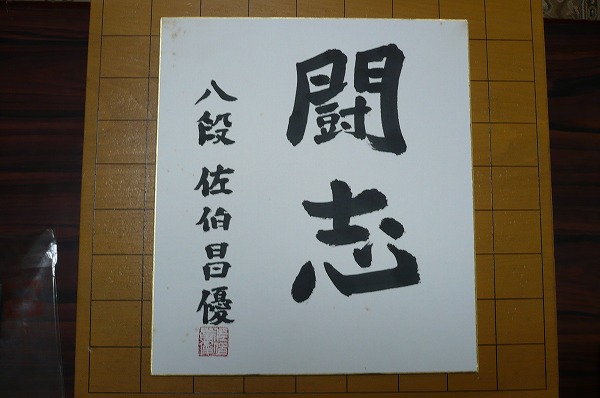 闘志
八段 佐伯昌優